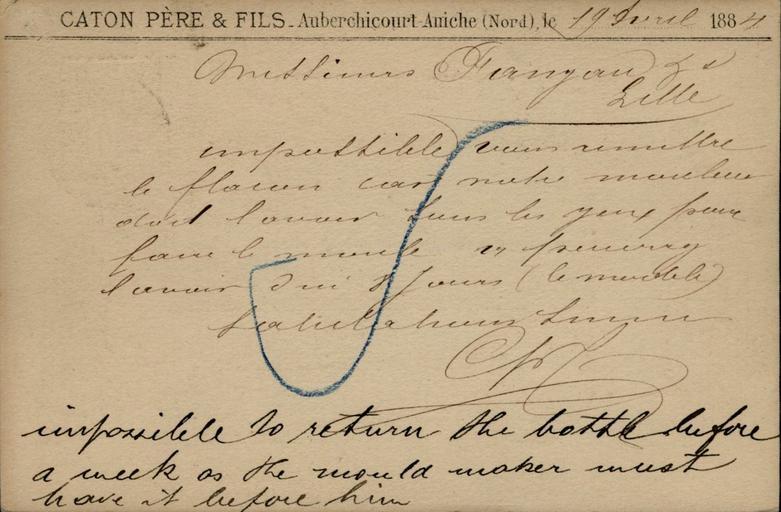 CATON PÈRE & FILS - Auberchicourt-Aniche (Nord), le 19 Avril 1884
Messieurs
Lille
impossible vous remettre
le flacon car notre mouleur
doit l'avoir sous les yeux pour
faire le moule
l'avoir 8 jours (le modèle)
Salutations
impossible to return the bottle before
a week as the mould maker must
have it before him